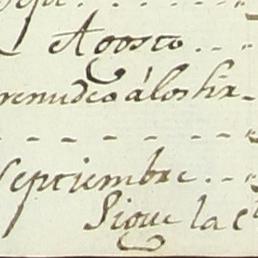 Agosto . . "
renudeo á los hir-
- - - - - - "
Septiembre . . "
Sigue la C